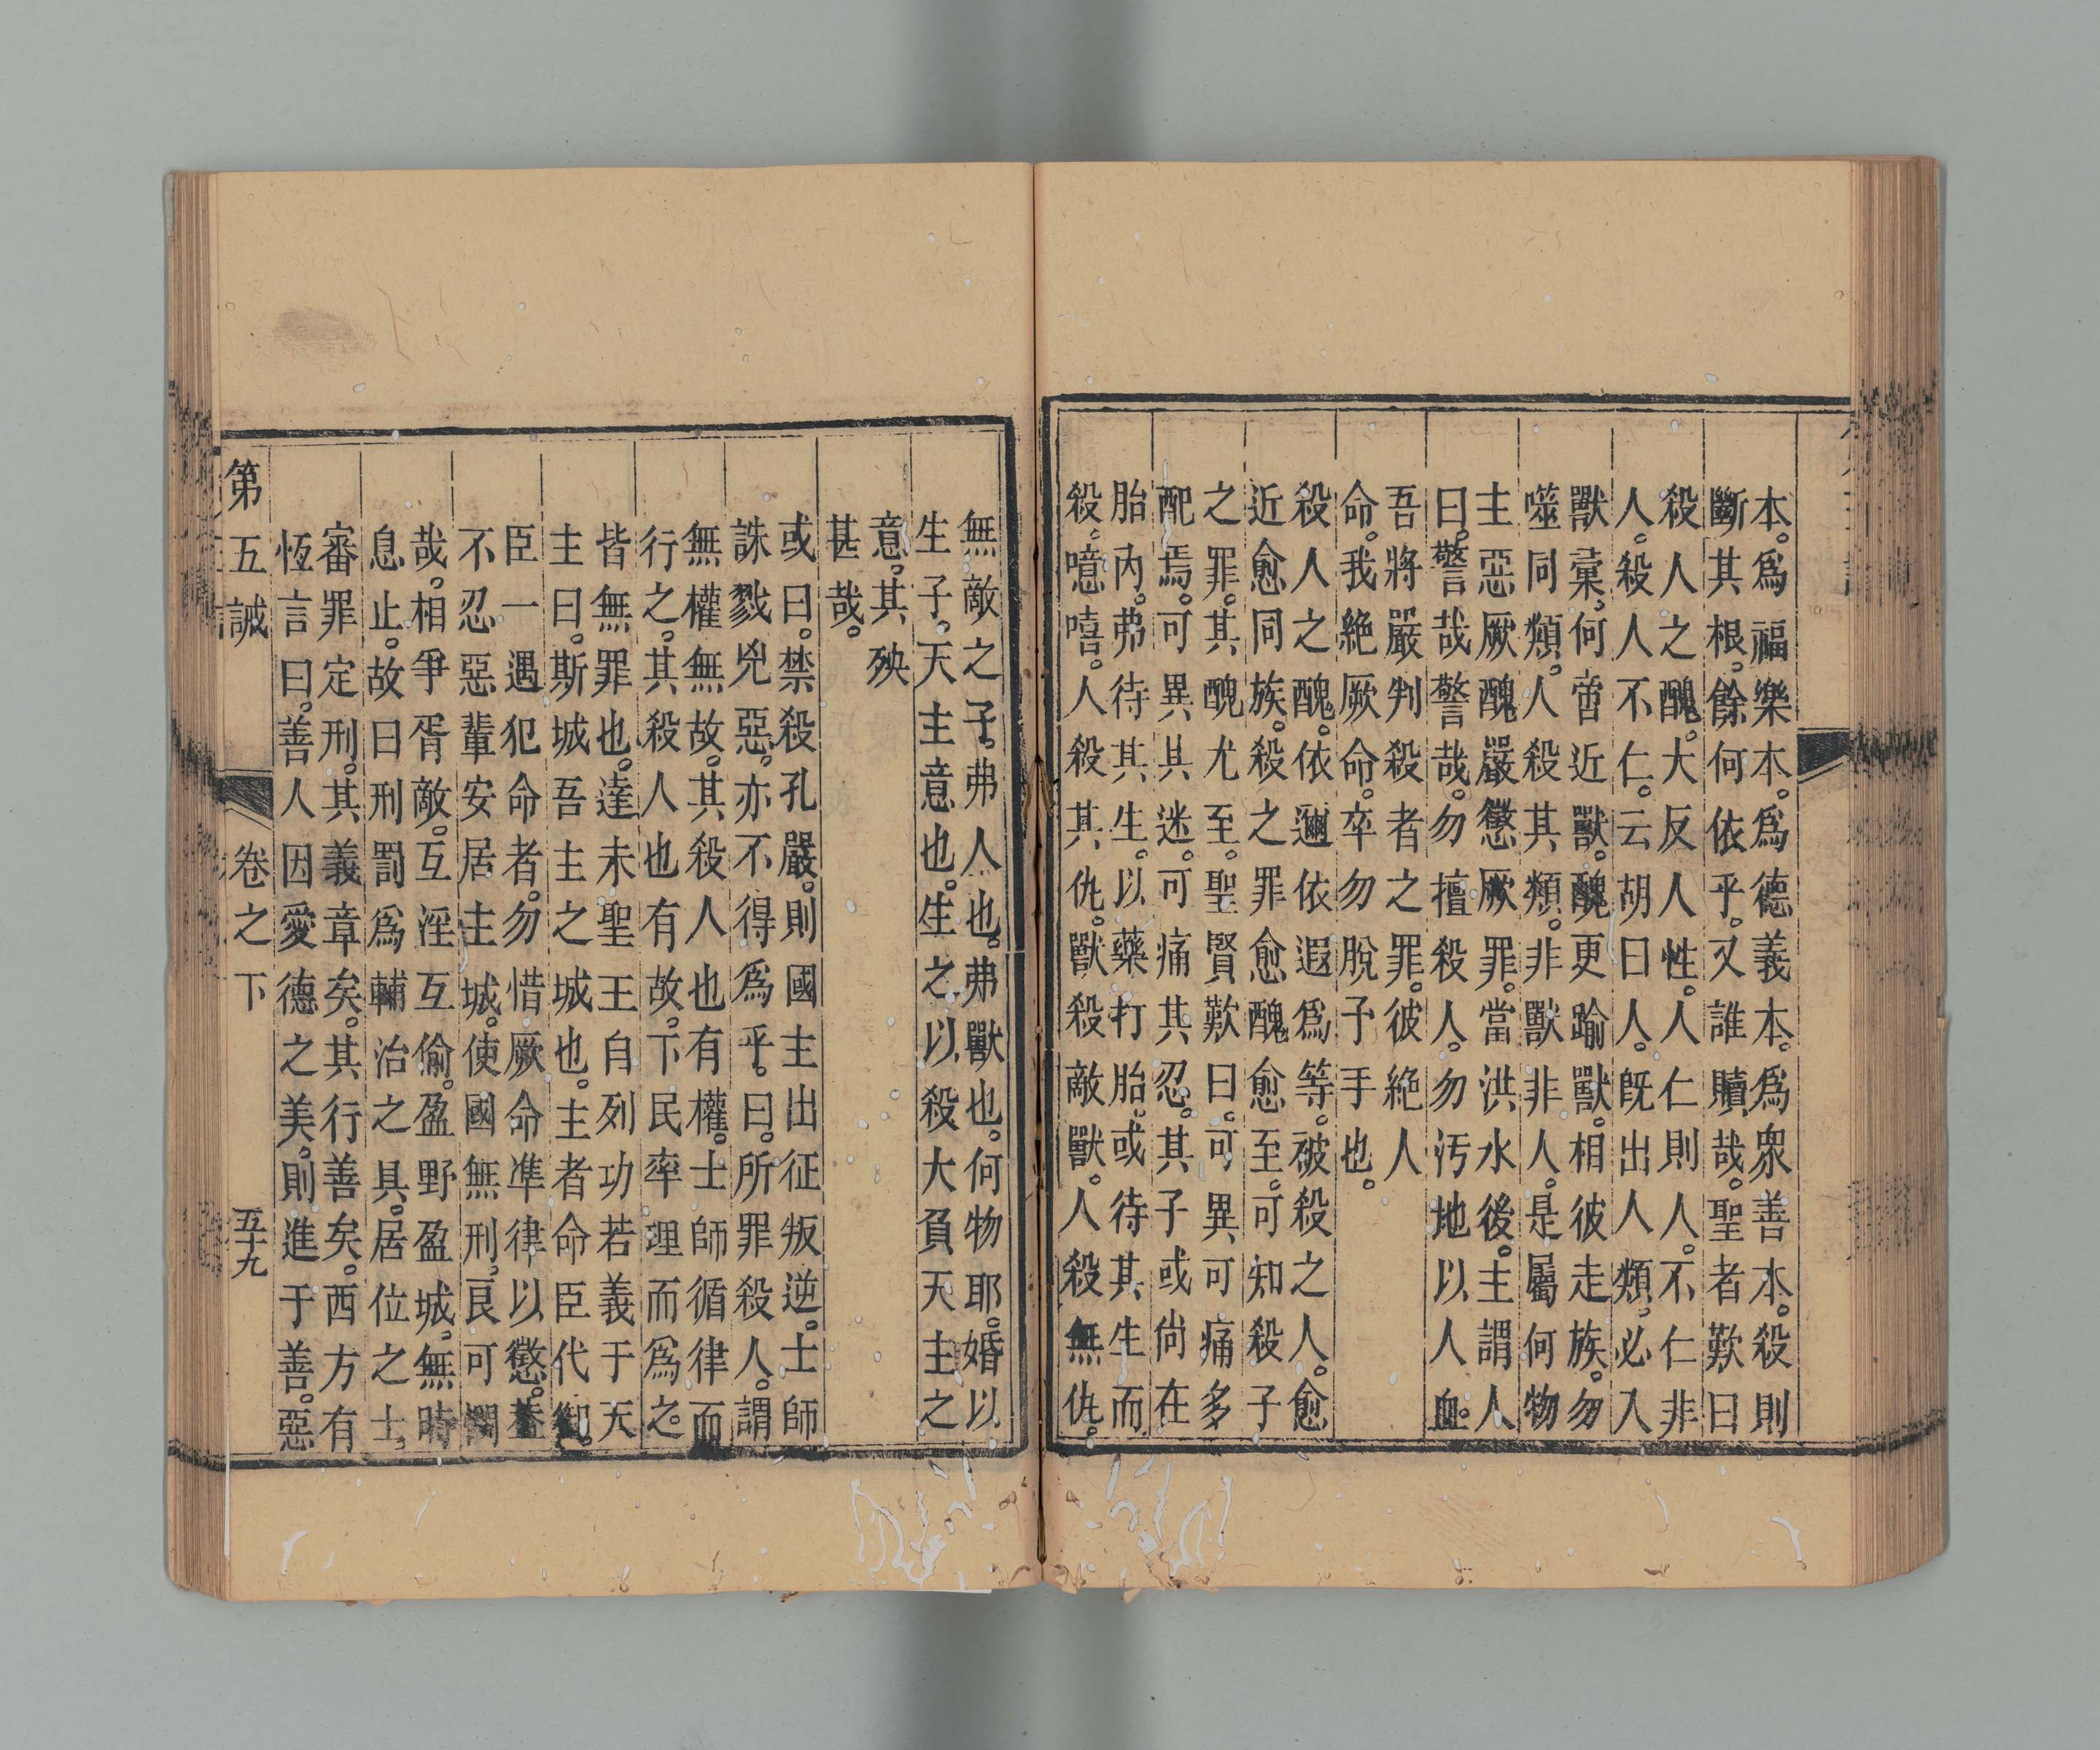 本。爲福樂本。爲德義本。爲衆善本。殺則
斷其根。餘何依乎。又誰贖哉。聖者歎曰
殺人之醜。大反人性。人仁則人。不仁非
人。殺人人不仁。云胡曰人。旣出人類。必入
獸彙。何啻近獸。醜更踰獸。相彼走族。勿
噬同類。人殺其類。非獸非人。是屬何物
主惡厥醜。嚴懲厥罪。當洪水後。主謂人
曰。警哉警哉。勿擅殺人。勿汚地以人血。
吾將嚴判殺者之罪。彼絕人
命。我絕厥命。卒勿脫予手也。
殺人之醜。依邇依遐爲等。被殺之人。愈
近愈同族。殺之罪愈醜愈至。可知殺子
之罪。其醜尤至。聖賢歎曰。可異可痛多
配焉。可異其迷。可痛其忍。其子或尙在
胎內。弗待其生。以藥打胎。或待其生而
殺。噫嘻。人殺其仇。獸殺敵獸。人殺無仇。
無敵之子。弗人也。弗獸也。何物耶。婚以
生子。天主意也。生之以殺大負天主之
意。其殃
甚哉。
或曰。禁殺孔嚴。則國主出征叛逆。士師
誅戮兇惡。亦不得爲乎。曰。所罪殺人。謂
無權無故。其殺人也有權。士師循律而
行之。其殺人也有故。下民率理而爲之。
皆無罪也。達未聖王自列功若義于天
主曰。斯城吾主之城也。主者命臣代御。
臣一遇犯命者。勿惜厥命準律以懲。蓋
不忍惡輩安居主城。使國無刑。良可憫
哉。相爭胥敵。互淫互偷。盈野盈城。無時
息止。故曰刑罰爲輔治之具。居位之士。
審罪定刑。其義章矣。其行善矣。西方有
恆言曰。善人因愛德之美。則進于善。惡
第五誡　卷之下　五十九